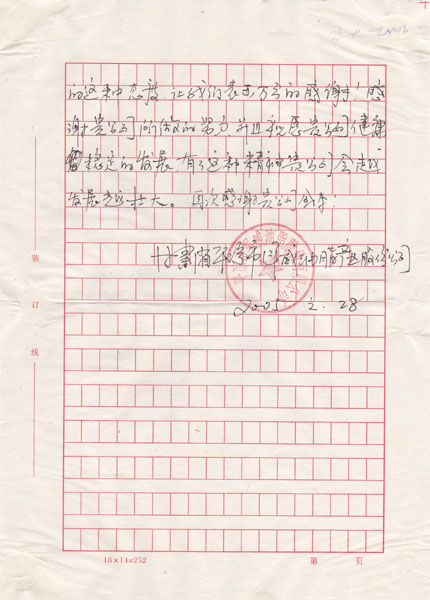 的这种态度 让我们表示万分的感谢！感
谢贵公司所做的努力 并且祝愿贵公司健康
稳定的发展 有了这种精神贵公司会越
发展越壮大。再次感谢贵公司
甘肃省平凉市
2005 2. 28
装
订
线
18×14=252
第 页